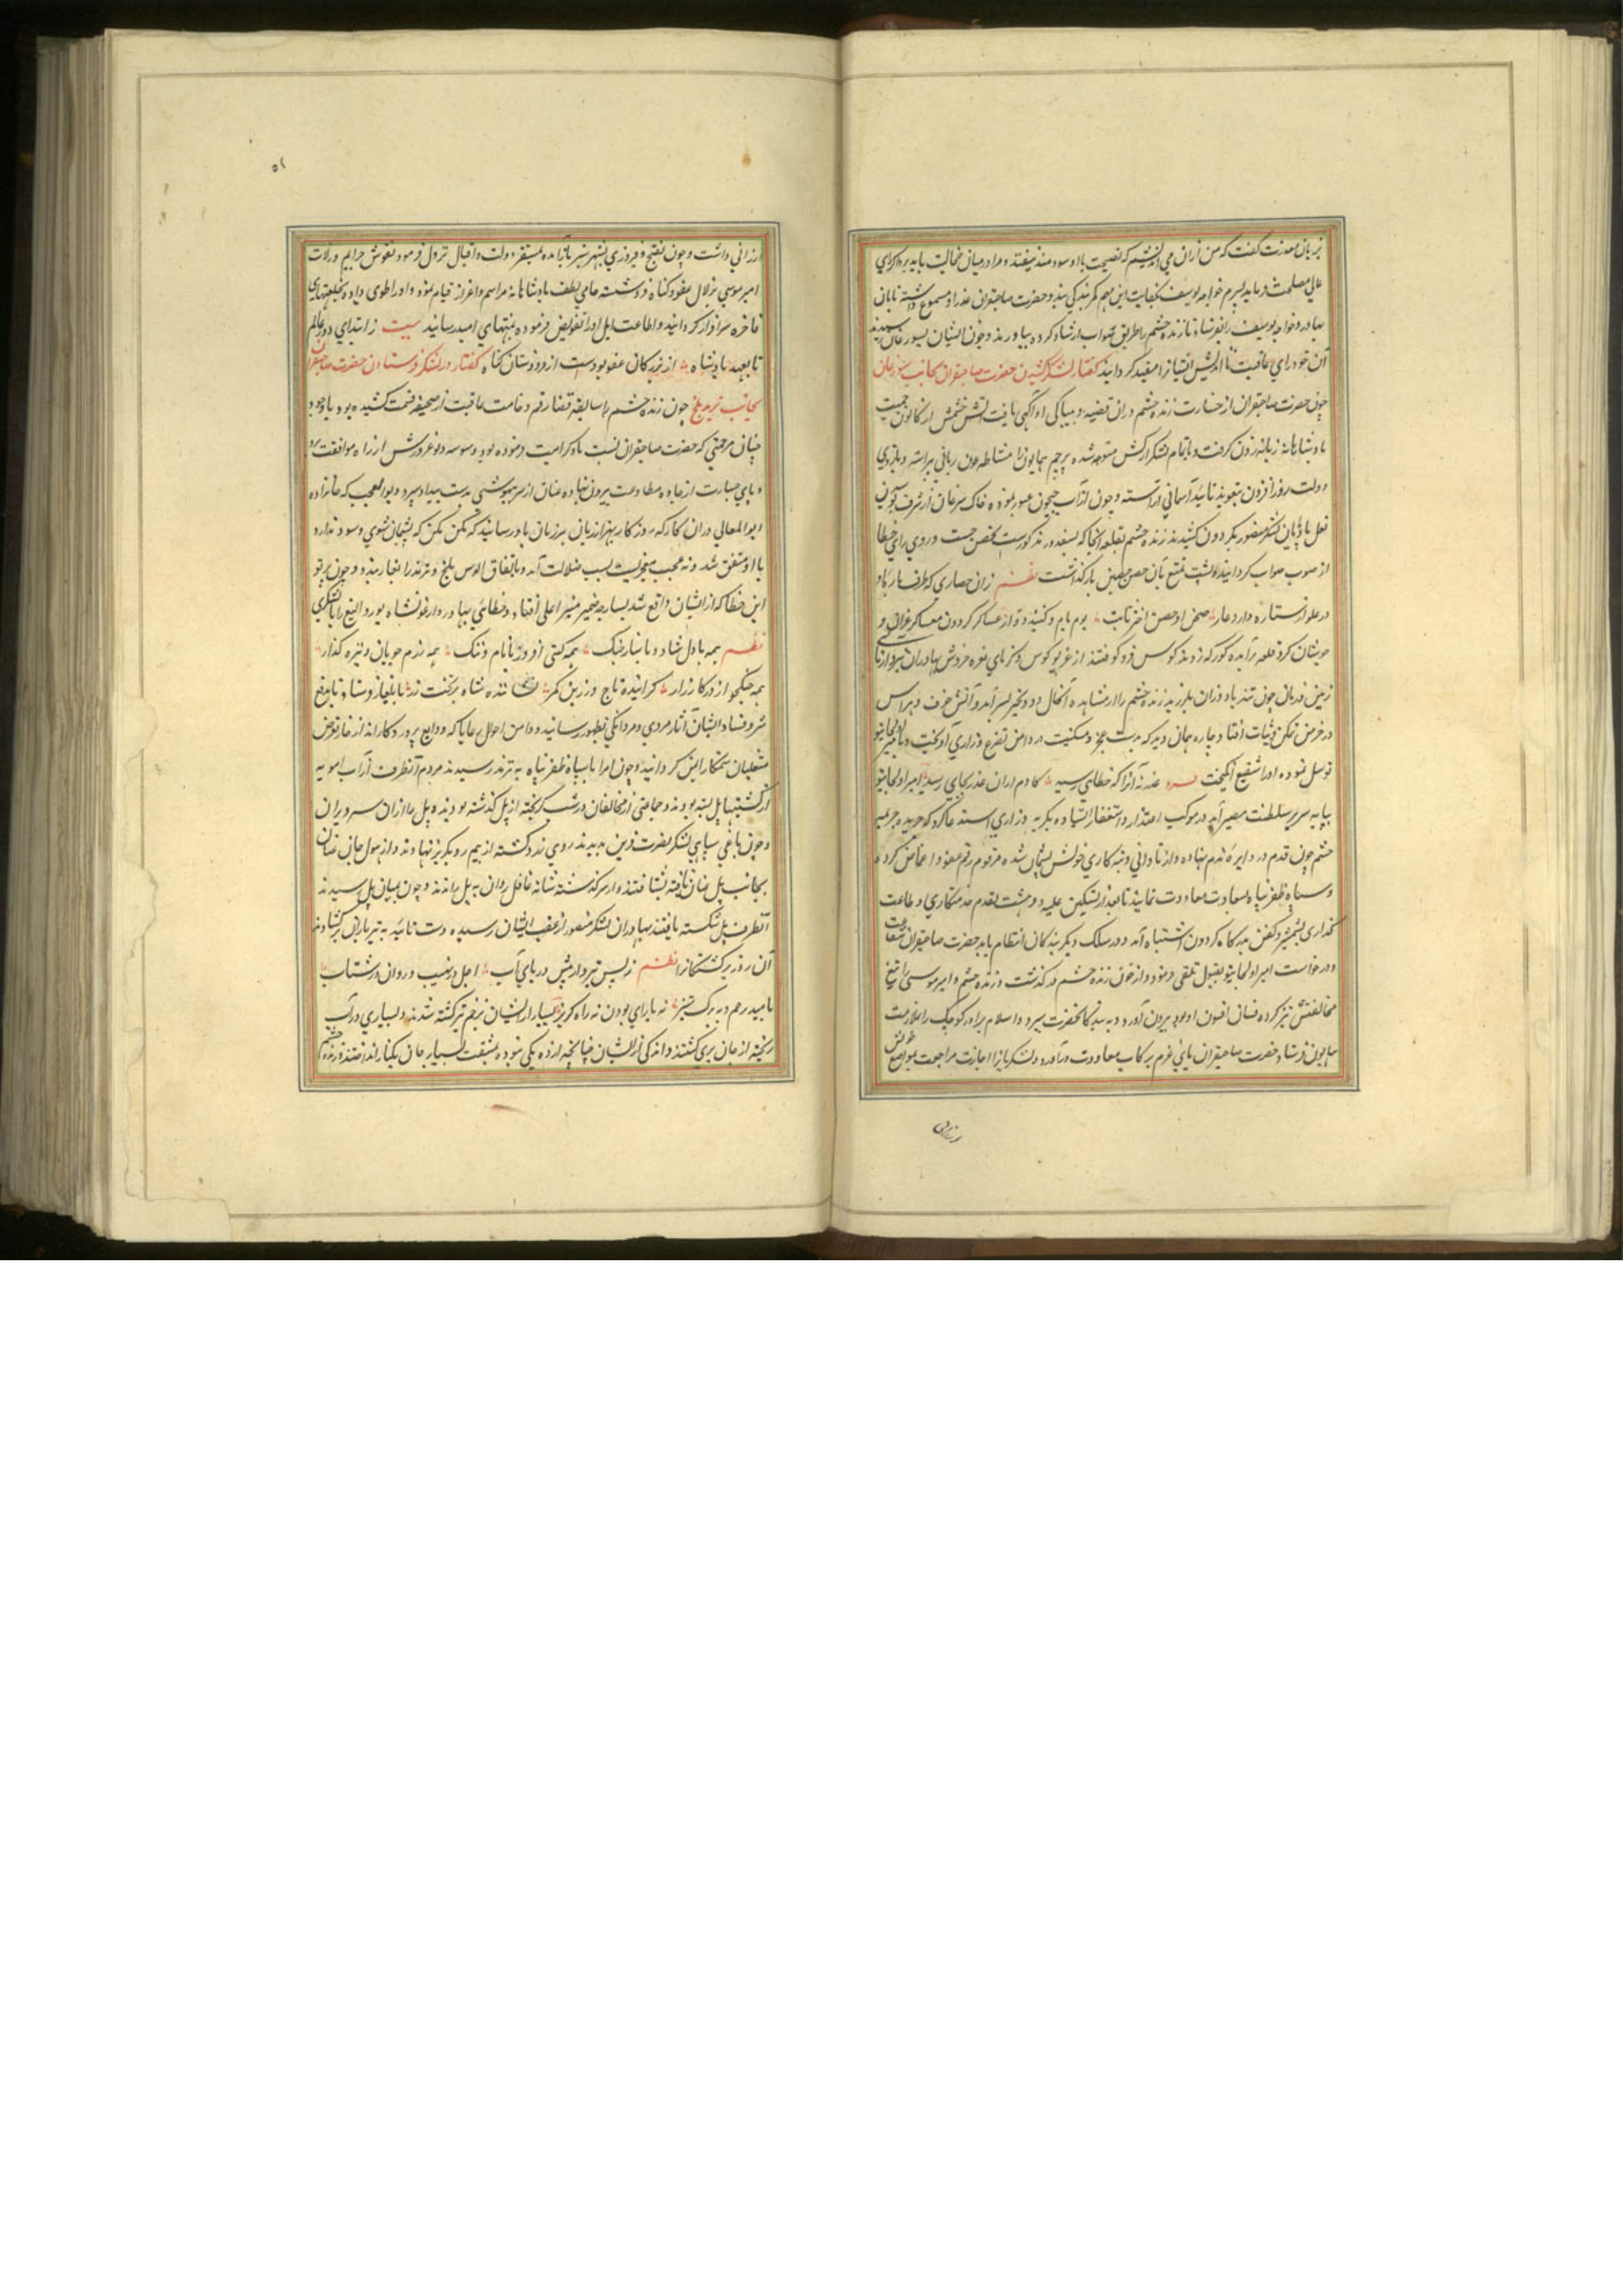 بزبان معذرت گفت که من ازان می اندیشم که نصیحت با او سودمند نیفتد و مرا در میان خجالت باید برد اگر رای
عالی مصلحت فرماید پسرم خواجه یوسف بکفایت این مهم کمر بندگی بندد حضرت صاحبقران عذر او مسموع داشته تابان
بهادر و خواجه یوسف را بفرستاد تا زنده چشم را بطریق صواب ارشاد کرده بیاورند و چون ایشان بسبورغان رسیدند
آن خود رای عاقبت نااندیش ایشانرا مقید گردانید گفتار در لشکر کشیدن حضرت صاحبقران بجانب سبورغان
چون حضرت صاحبقران از جسارت زنده چشم دران قضیه و بیباکی او آگهی یافت آتش خشمش از کانون حمیت
پادشاهانه زبانه زدن گرفت و باتمام لشکر از کش متوجه شده پرچم همایون را مشاطه عون ربانی پیراسته و بازوی
دولت روزافزون بتعویذ تائید آسمانی آراسته و چون از آب جیحون عبور نموده خاک سبرغان از شرف
نعل بادپایان لشکر منصور بگردون کشیدند زنده چشم بقلعه آنجا که بسفید دز مذکورست تحصن جست و روی رای خطا
از صوب صواب گردانید و پشت تمتع بآن حصن حصین بازگذاشت نظم زان حصاری که طرف بارۀ او
در علو از ستاره دارد عار صحن او حصن اختر ثابت بوم بام و گنبد دوار عساکر گردون معسکر
جوشان گرد قلعه برآمده گورکه زدند کوس فروکوفتند از غریو کوس و کرنای نعره خروش بهادران نبرد آزمای
زمین و زمان چون تندباد وزان بلرزید زنده چشم را از مشاهده آنحال دود تحیر بسر برآمد و آتش خوف و هراس
در خرمن تمکن و ثبات افتاد و چاره همان دید که بدست عجز و مسکنت در دامن تضرع و زاری آویخت و بامیر اولجایتو
توسل نموده او را شفیع انگیخت عذر نه آنرا که خطائی رسید کادم ازان عذر بجای رسید امیر اولجایتو
بپایه سریر سلطنت مصیر آمد در موکب اعتذار و استغفار ایستاده بگریه و زاری استدعا کرد که جریمه
چشم چون قدم در دایره ندم نهاده و از نادانی و تبه کاری خویش پشیمان شده مرقوم رقم عفو و اغماض گردد
و سپاه ظفرپناه بسعادت معاودت نمایند تا بعد از تسکین غلبه دهشت بقدم خدمتکاری و طاعت
گذاری بشمشیر و کفن بدرگاه گردون اشتباه آمده در سلک دیگر بندگان انتظام یابد حضرت صاحبقران شفاعت
و درخواست امیر اولجایتو بقبول تلقی فرمود و از خون زنده چشم درگذشت و زنده چشم و امیر موسی را تیغ
مخالفتش تیز کرده فسان افسون او بود بیرون آورد و به بندگانحضرت سپرد و اسلام برادر کوچک را ملازمت
همایون فرستاد حضرت صاحبقران پای عزم برکاب معاودت درآورد و لشکریانرا اجازت مراجعت بمواضع خویش
ارزانی
۵۱
ارزانی داشت و چون بفتح و فیروزی بشهر سبز بازآمده بمستقر دولت و اقبال نزول فرمود نقوش جرایم و زلات
امیر موسی بزلال عفو گناه فروشسته حامی لطف پادشاهانه مراسم اعزاز قیام نمود و او را طوی داده بخلعتهای
فاخره سرافراز گردانید و اطاعت ایل او را تفویض فرموده بمنتهای امید رسانید بیت ز ابتدای دور عالم
تا بعهد پادشاه از بزرگان عفو بودست از فرودستان گناه گفتار در لشکر فرستادن حضرت صاحبقران
بجانب ترمذ و بلخ چون زنده چشم را سابقه قضا رقم وخامت عاقبت از صحیفه قسمت کشیده بود با وجود
چنان مرحمتی که حضرت صاحبقران نسبت با او کرامت فرموده بود وسوسه دیو غرورش از راه موافقت برد
و پای جسارت از جاده مطاوعت بیرون نهاده عنان از سر بیهوشی بدست بیداد سپرد و بوالعجب که خانزاده
ابوالمعالی دران کار که روزگار بهزار زبان هر زمان باو رسانید که مکن مکن که پشیمان شوی و سود ندارد
با او متفق شد و نه عجب میخواست بسبب ضلالت آمد و باتفاق الوس بلخ و ترمذ را تاختند و چون پرتو
این خطا که از ایشان واقع شد بسایه ضمیر منیر اعلی افتاد و خطائی بهادر و ارغونشاه بوردالیغ را با لشکری
نظم همه با دل شاد و با ساز جنگ همه گیتی افروز با نام و ننگ همه رزم جویان و نیزه گذار
همه جنگجو از در کارزار گرانیده تاج و زرین کمر نشاننده شاه بر تخت زر بایلغار فرستاد تا بدفع
شر و فساد ایشان آثار مردی و مردانگی بظهور رسانید و دامن احوال رعایا که ودایع پروردگار اند از خار تعرض
متغلبان ستمکار ایمن گردانید و چون امرا با سپاه ظفرپناه به ترمذ رسیدند مردم آنطرف از آب آمویه
از کشتیها پل بسته بودند و جماعتی از مخالفان در شب گریخته از پل گذشته بودند و پل را ازان سر ویران
و چون یاغی سیاهی لشکر نصرت قرین بدیدند روی زرد گشته از بیم رو بگریز نهادند و از هول جان عنان
بجانب پل عنان تافته بشتافتند و از سرگذشته شبانه غافل روان به پل راندند و چون بمیان پل رسیدند
آنطرف پل شکسته یافتند بهادران لشکر منصور از عقب ایشان رسیده دست تائید به تیرباران برگشادند
آن روز برگشتگانرا نظم ز پس تیر و از پیش دریای آب اجل در نهیب و روان در شتاب
نه یارای بودن نه راه گریز بسیار از ایشان بزخم تیر کشته شدند و بسیاری در آب
ریخته از جان بری گشتند و اندکی از ایشان چنانچه از ده یکی نبوده بمشقت بسیار جان بکنار انداختند و زنده چشم